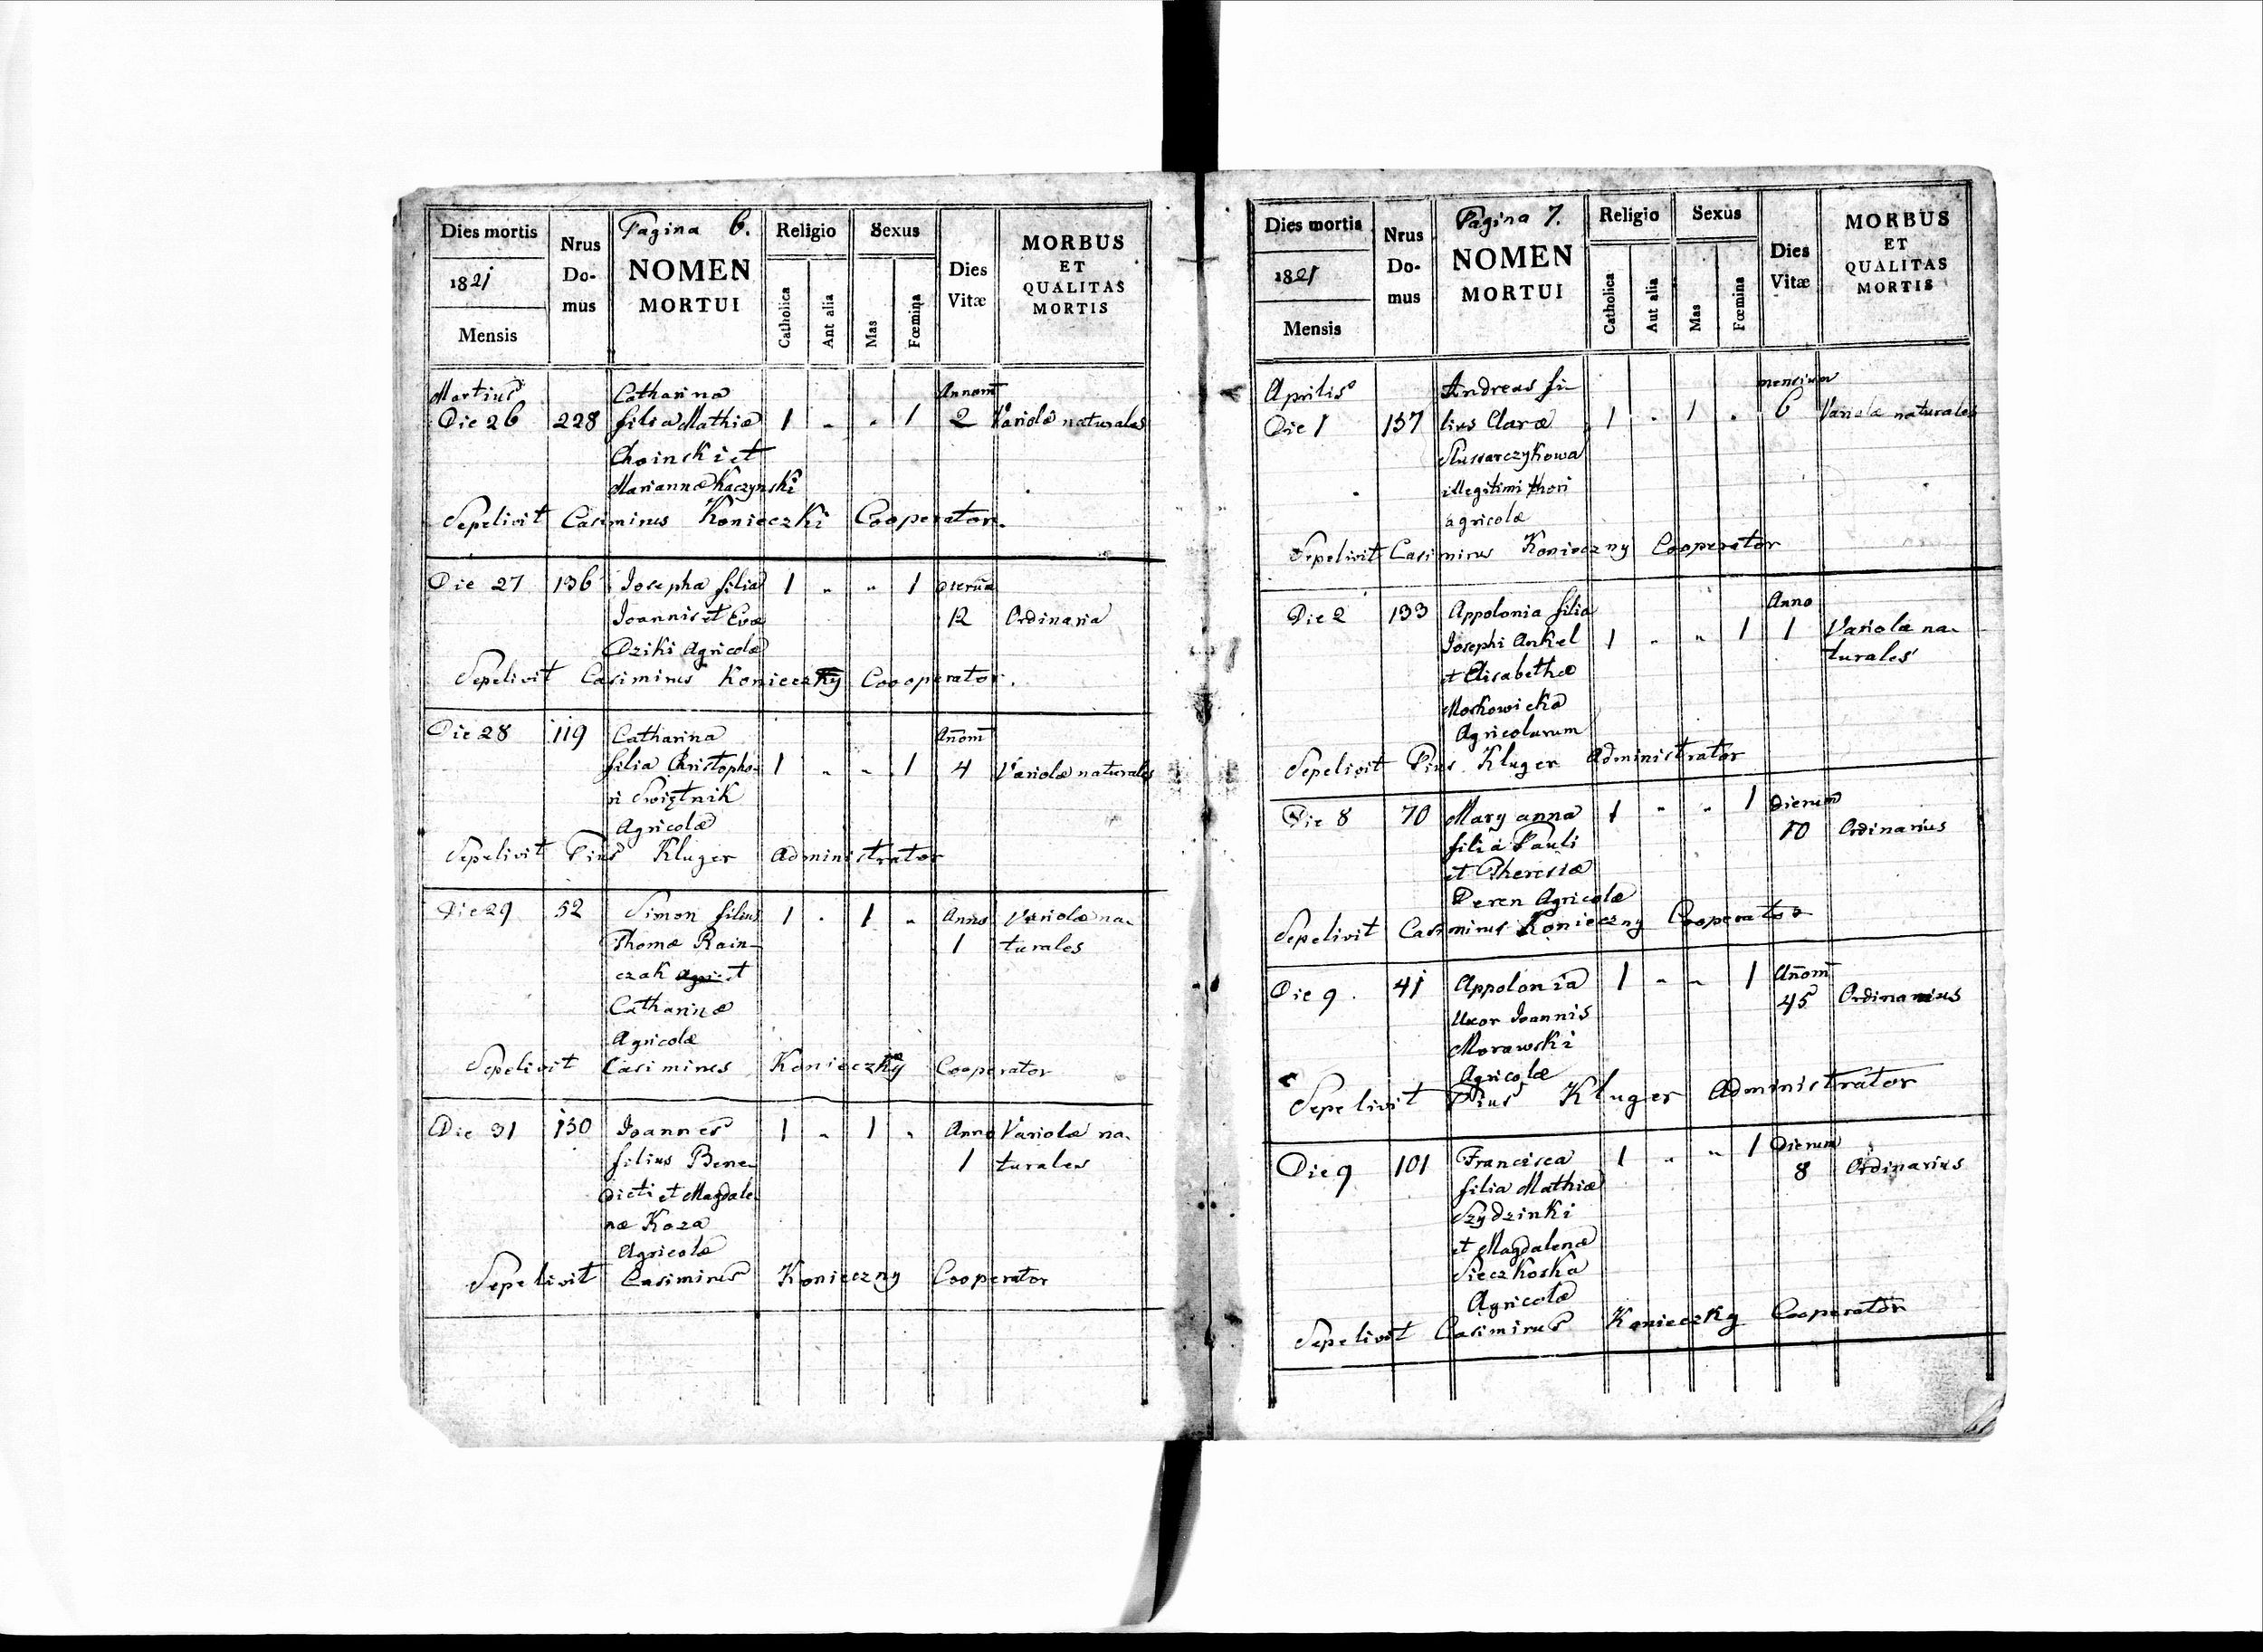 Dies mortis
1821
Mensis
Nrus
Do-
mus
Pagina 6.
NOMEN
MORTUI
Religio
Catholica
Ant alia
Sexus
Mas
Fœmina
Dies
Vitæ
MORBUS
ET
QUALITAS
MORTIS
Martius Catharina Annom
Die 26 228 filia Mathiæ 1 " " 1 2 Variolæ naturales
Choinski et
Mariannæ Kaczynski
Sepelivit Casimirus Konieczki Cooperator.
Die 27 136 Josepha filia 1 " " 1 Dierum
Joannis et Evæ 12 Ordinaria
Dziki Agricolæ
Sepelivit Casimirus Konieczky Coooperator.
Die 28 119 Catharina Añom
filia Christopho- 1 " " 1 4 Variolæ naturales
ri Swiętnik
Agricolæ
Sepelivit Pius Kluger Administrator
Die 29 52 Simon filius 1 " 1 " Anno Variolæ na-
Thomæ Rain- 1 turales
czak et
Catharinæ
Agricolæ
Sepelivit Casimirus Konieczky Cooperator
Die 31 130 Joannes 1 " 1 " Anno Variolæ na-
filius Bene- 1 turales
dicti et Magdale
næ Koza
Agricolæ
Sepelivit Casimirus Konieczny Cooperator
Dies mortis
1821
Mensis
Nrus
Do-
mus
Pagina 7.
NOMEN
MORTUI
Religio
Catholica
Aut alia
Sexus
Mas
Fœmina
Dies
Vitæ
MORBUS
ET
QUALITAS
MORTIS
Aprilis Andreas fi- mensium
Die 1 137 lius Claræ 1 " 1 " 6 Variolæ naturales
Slusarczykowa
illegitimi thori
agricolæ
Sepelivit Casimirus Konieczny Cooperator
Die 2 133 Appolonia filia Anno
Josephi Ankel 1 " " 1 1 Variolæ na-
et Elisabethæ turales
Moskowicka
Agricolarum
Sepelivit Pius Kluger Administrator
Die 8 70 Mary anna 1 " " 1 Dierum
filia Pauli 10 Ordinarius
et Theresiæ
Deren Agricolæ
Sepelivit Casimirus Konieczny Cooperator
Die 9. 41 Appolonia 1 " " 1 Añom
Uxor Joannis 45 Ordinarius
Morawski
Agricolæ
Sepelivit Pius Kluger Administrator
Die 9 101 Francisca 1 " " 1 Dierum
filia Mathiæ 8 Ordinarius
Szydzinki
et Magdalenæ
Sieczkoska
Agricolæ
Sepelivit Casimirus Konieczky Cooperator